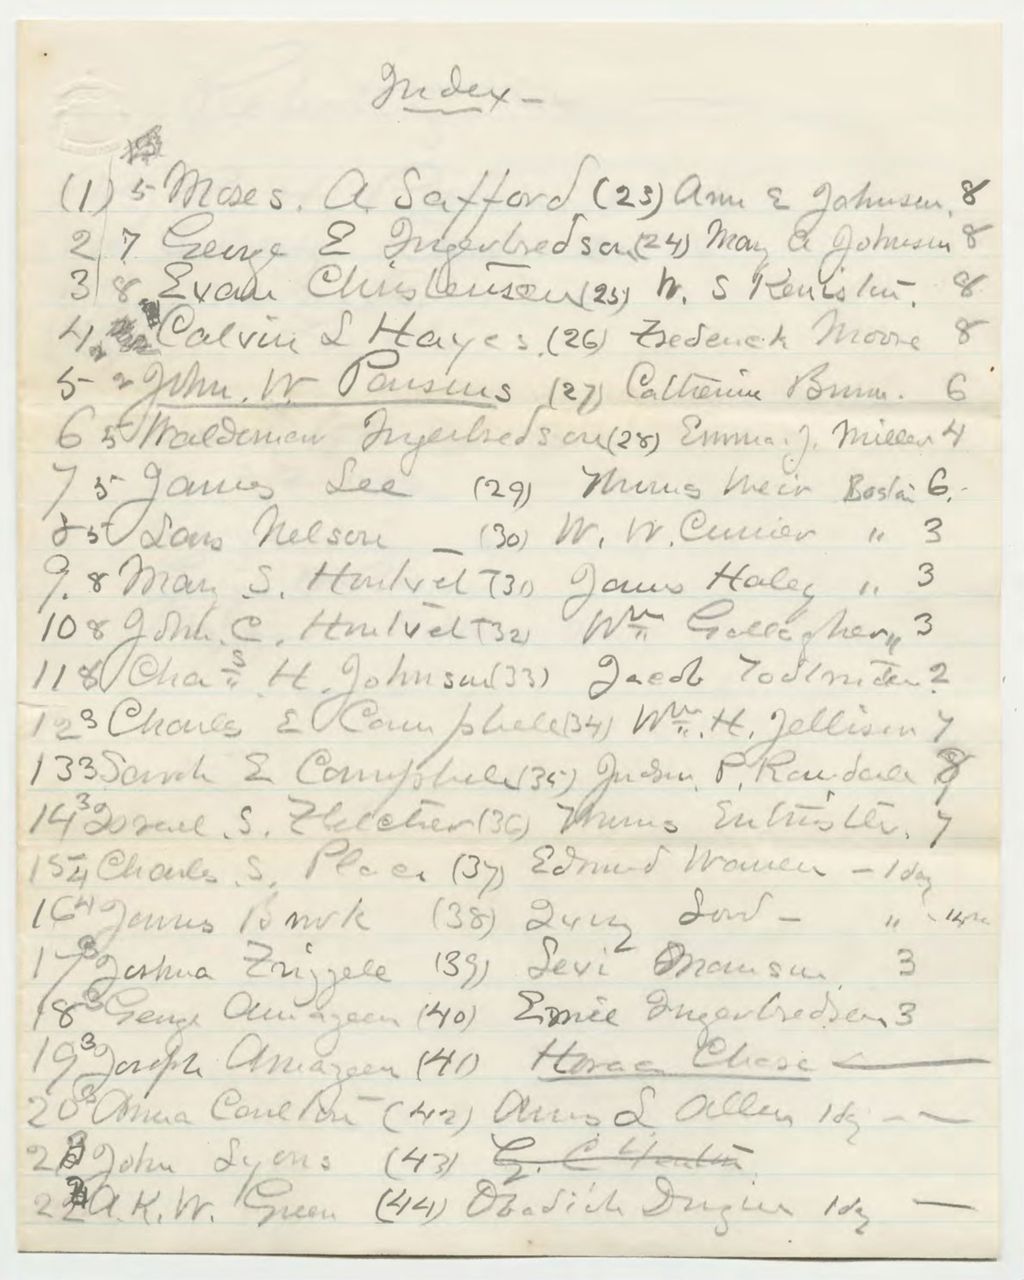 Index -
(1) 5 Moses. A Safford (23) Ann E Johnson. 8
2 7 George E Ingerbredson (24) Mary A Johnson 8
3 8 Evan Christensen (25) W. S Keniston. 8
4 2 Calvin L Hayes. (26) Frederick Moore 8
5- 2 John. W. Parsons (27) Catherine Brown. 6
6 5 Waldemar Ingerbredson (28) Emma. J. Miller 4
7 5 James Lee (29) Thomas Weir Boston 6.
8 5 Lars Nelson - (30) W. W. Currier " 3
9. 8 Mary S. Hontvet (31) James Haley " 3
10 8 John. C. Hontvet (32) Wm Gallagher " 3
11 8 Chas H. Johnson (33) Jacob 2
12 3 Charles E Campbell (34) Wm. H. Jellison 7
13 3 Sarah E Campbell (35) Judson. P. Randall 8
14 3 Israel. S. Fletcher (36) Thomas Entwistle. 7
15 4 Charles. S. Place (37) Edmund Warren - 1 day
16 4 James Burk (38) Lord - "
17 3 Joshua Frizzele (39) Levi 3
18 3 George Amazeen (40) Emil Ingerbredsen 3
19 3 Joseph Amazeen (41) Horace Chase
20 3 Anna Carlton (42) Amos L Allen 1 dy - -
21 3 John Lyons (43)
22 2 A. K. W. Green (44) Obadiah Durgin 1 dy -